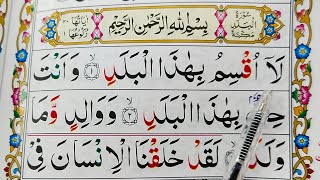 سُورَةُ الْبَلَدِ مَكِّيَّةٌ
بِسْمِ اللهِ الرَّحْمٰنِ الرَّحِيْمِ
اٰيَاتُهَا ٢٠
رُكُوْعُهَا ١
لَاۤ اُقْسِمُ بِهٰذَا الْبَلَدِ ۙ﴿١﴾ وَاَنْتَ
حِلٌّۢ بِهٰذَا الْبَلَدِ ۙ﴿٢﴾ وَوَالِدٍ وَّمَا
وَلَدَ ۙ﴿٣﴾ لَقَدْ خَلَقْنَا الْاِنْسَانَ فِیْ